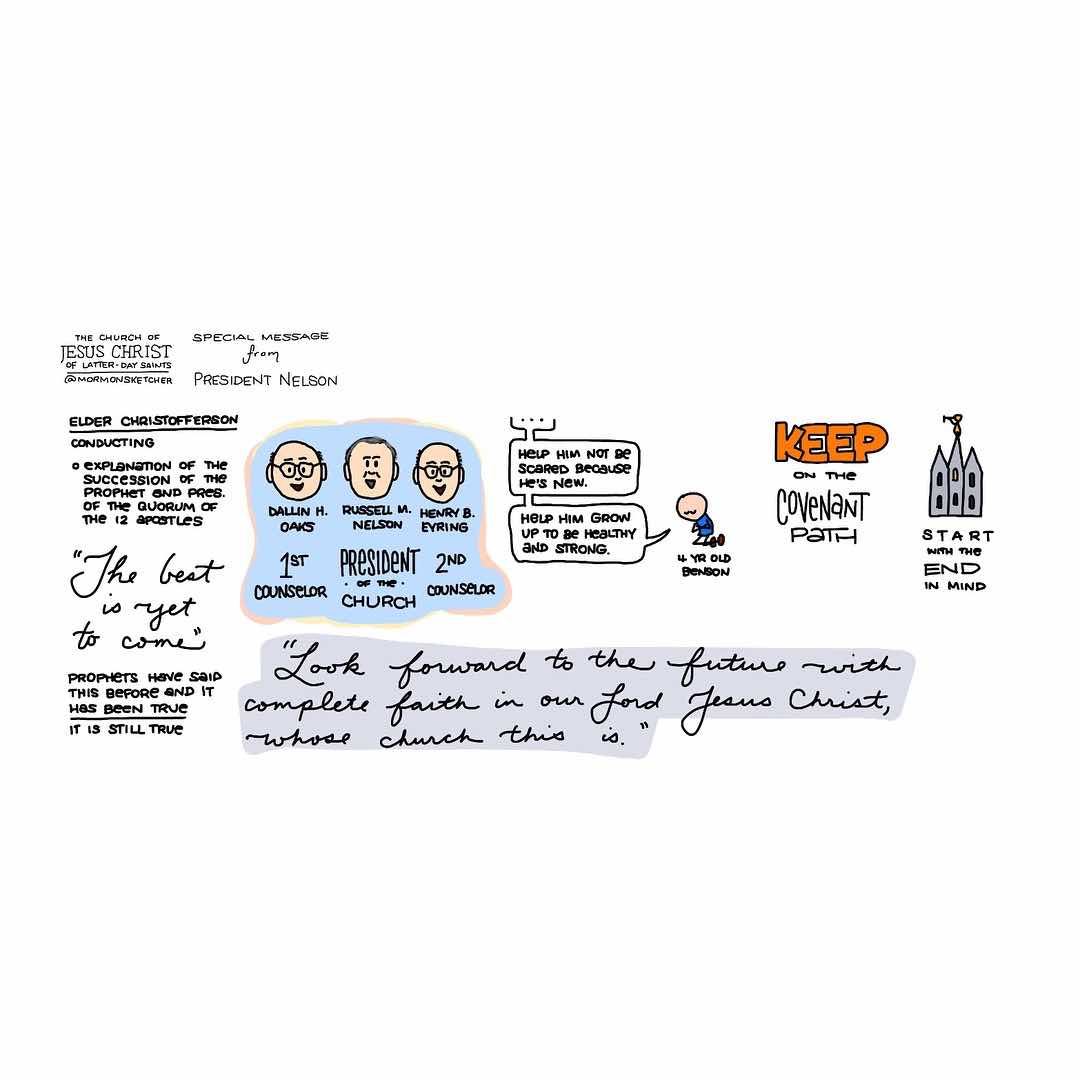 THE CHURCH OF
JESUS CHRIST
OF LATTER-DAY SAINTS
@MORMONSKETCHER
SPECIAL MESSAGE
from
PRESIDENT NELSON
ELDER CHRISTOFFERSON
CONDUCTING
o EXPLANATION OF THE
SUCCESSION OF THE
PROPHET AND PRES.
OF THE QUORUM OF
THE 12 APOSTLES
"The best
is yet
to come"
PROPHETS HAVE SAID
THIS BEFORE AND IT
HAS BEEN TRUE
IT IS STILL TRUE
DALLIN H.
OAKS
1ST
COUNSELOR
RUSSELL M.
NELSON
PRESIDENT
· OF THE ·
CHURCH
HENRY B.
EYRING
2ND
COUNSELOR
...
HELP HIM NOT BE
SCARED BECAUSE
HE'S NEW.
HELP HIM GROW
UP TO BE HEALTHY
AND STRONG.
4 YR OLD
BENSON
KEEP
ON THE
COVENANT
PATH
START
WITH THE
END
IN MIND
"Look forward to the future with
complete faith in our Lord Jesus Christ,
whose church this is."